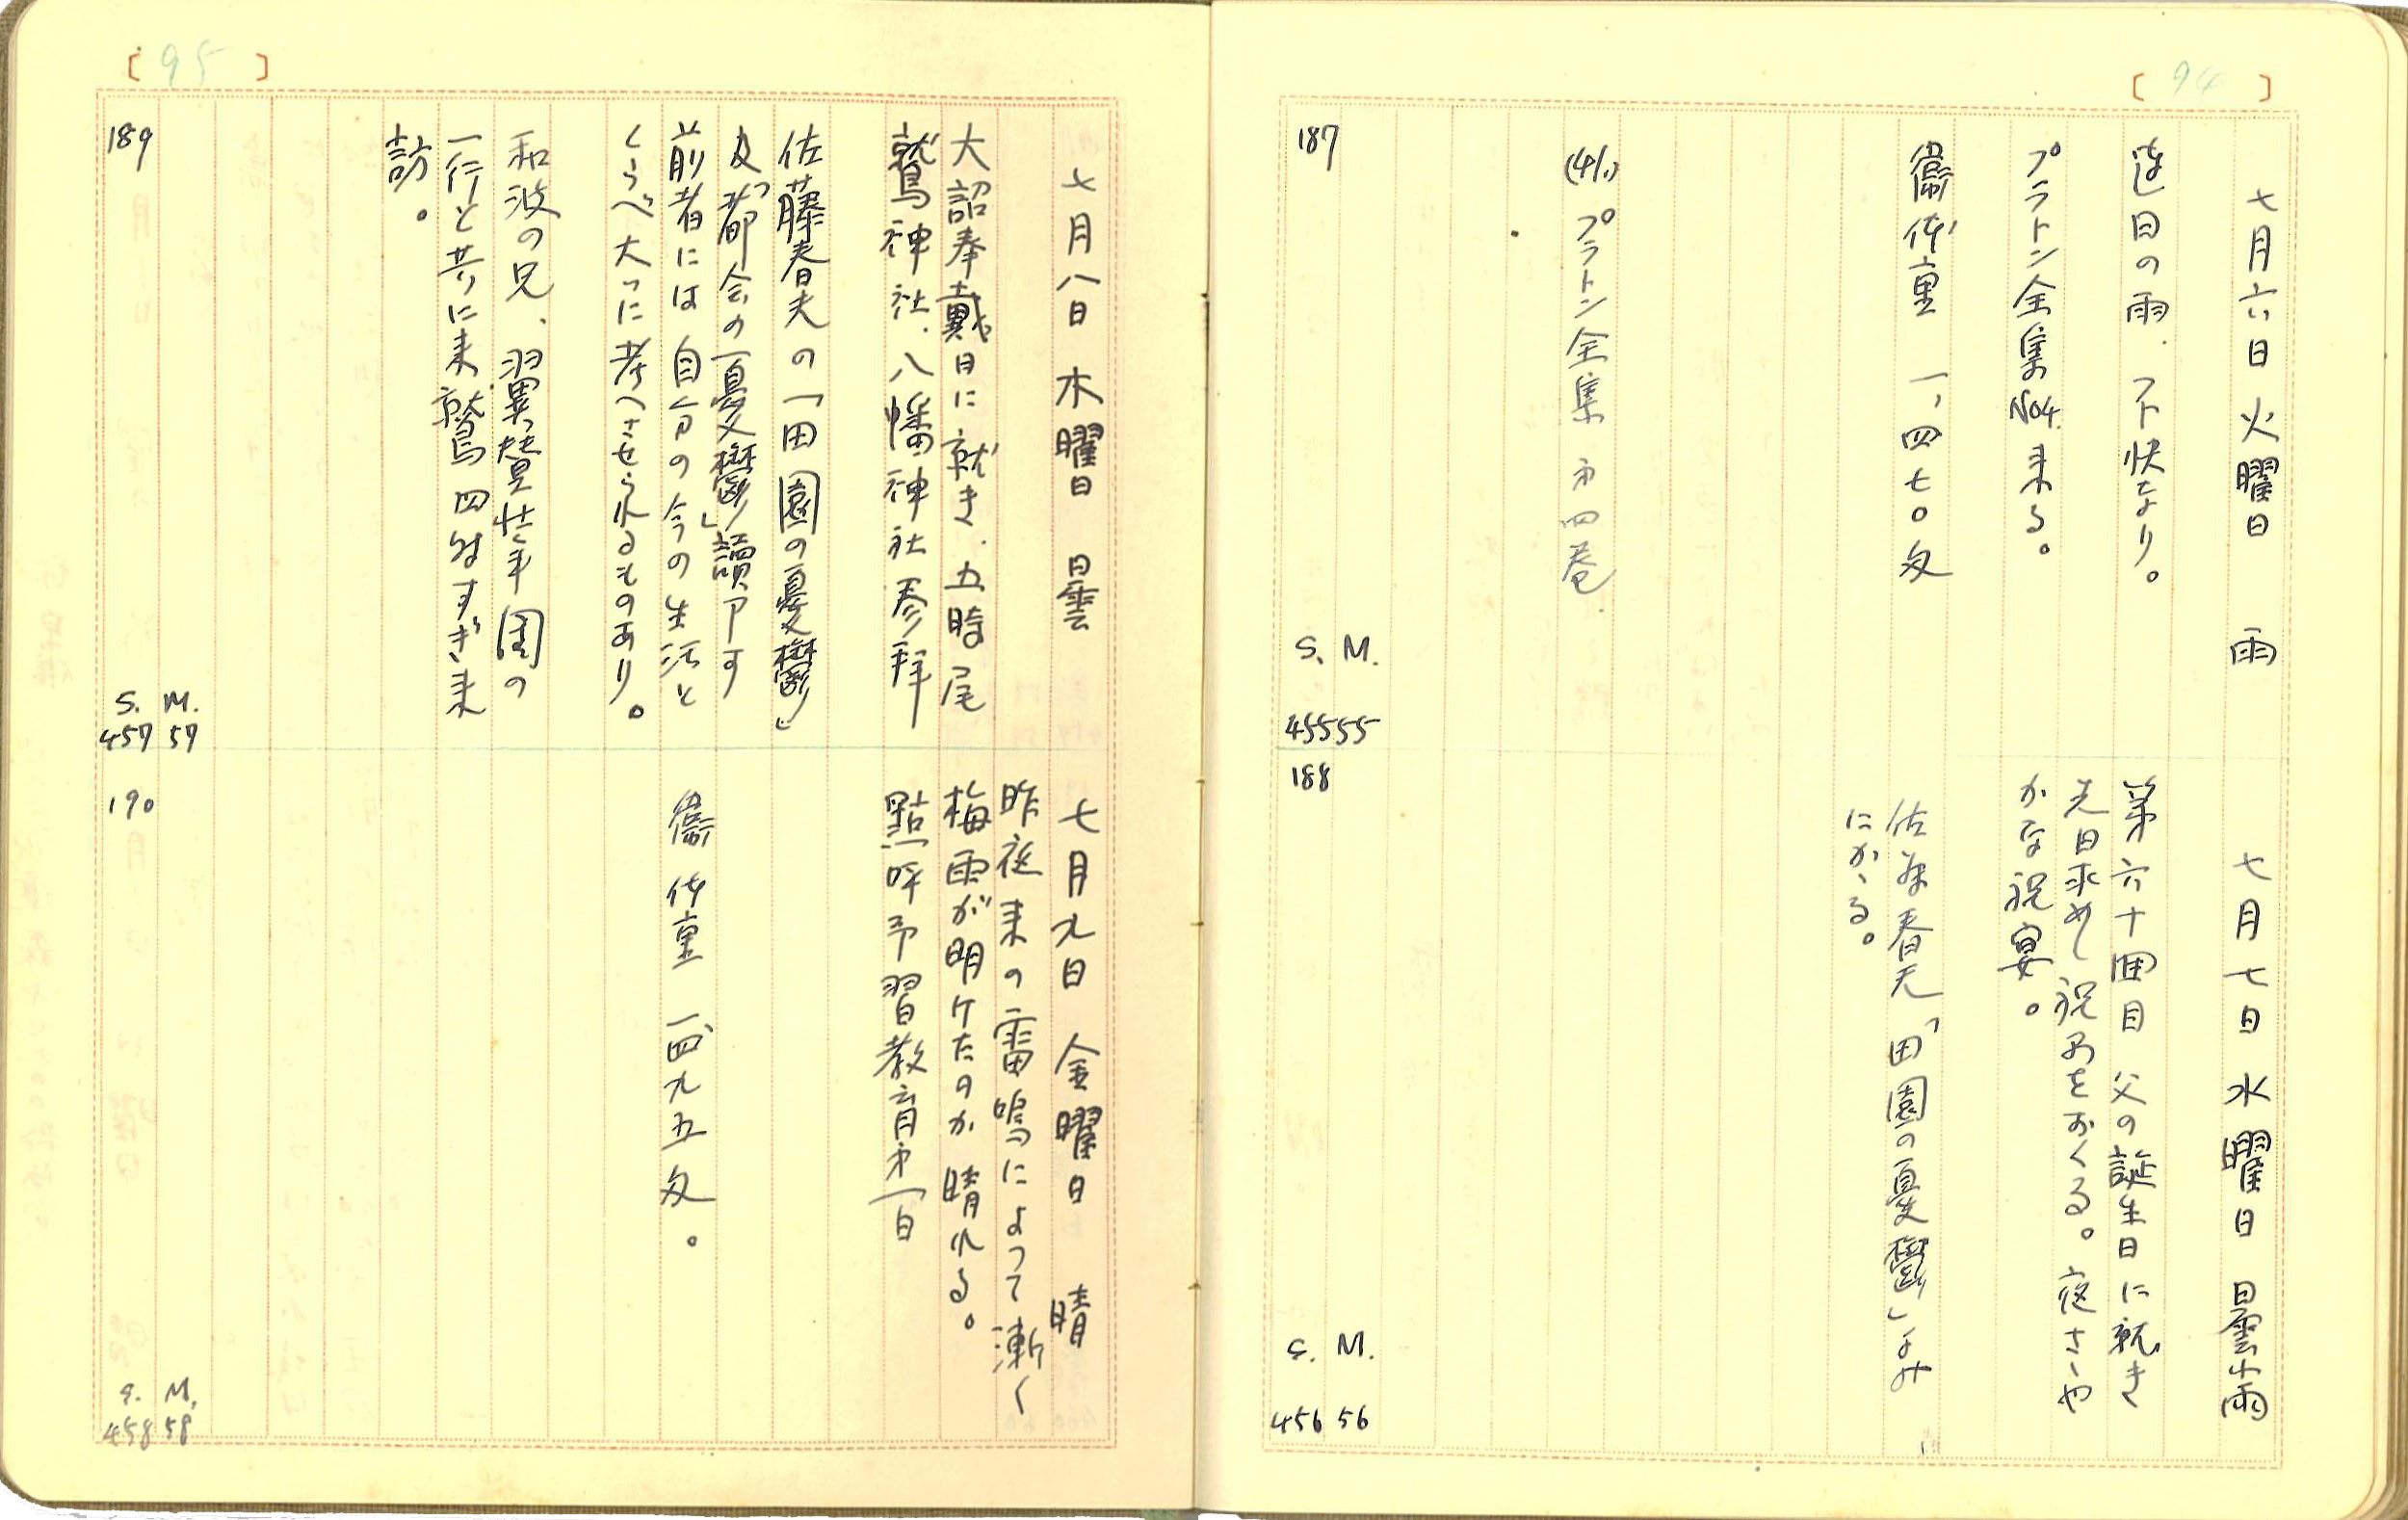 [94]
七月六日 火曜日 雨
連日の雨、不快なり。
プラトン全集No4.来る。
衞 体重 一、四七〇匁
(4/1) プラトン全集 第四巻.
187
S. M.
455 55
七月七日 水曜日 曇小雨
第六十回目 父の誕生日に就き
先日求めし祝品をおくる。夜さゝや
かな祝宴。
佐藤春夫「田園の憂鬱」よみ
にかゝる。
188
S. M.
456 56
[95]
七月八日 木曜日 曇
大詔奉戴日に就き、五時尾
鷲神社、八幡神社参拜
佐藤春夫の「田園の憂鬱」
及「都会の憂鬱」讀了す
前者には自分の今の生活と
くらべ大いに考へさせられるものあり。
和波の兄、翼賛壮年團の
一行と共に来鷲 四时すぎ来
訪。
189
S. M.
457 57
七月九日 金曜日 晴
昨夜来の雷鳴によって漸く
梅雨が明ケたのか晴れる。
點呼予習教育第一日
衞 体重 一、四九五匁。
190
S. M.
458 58